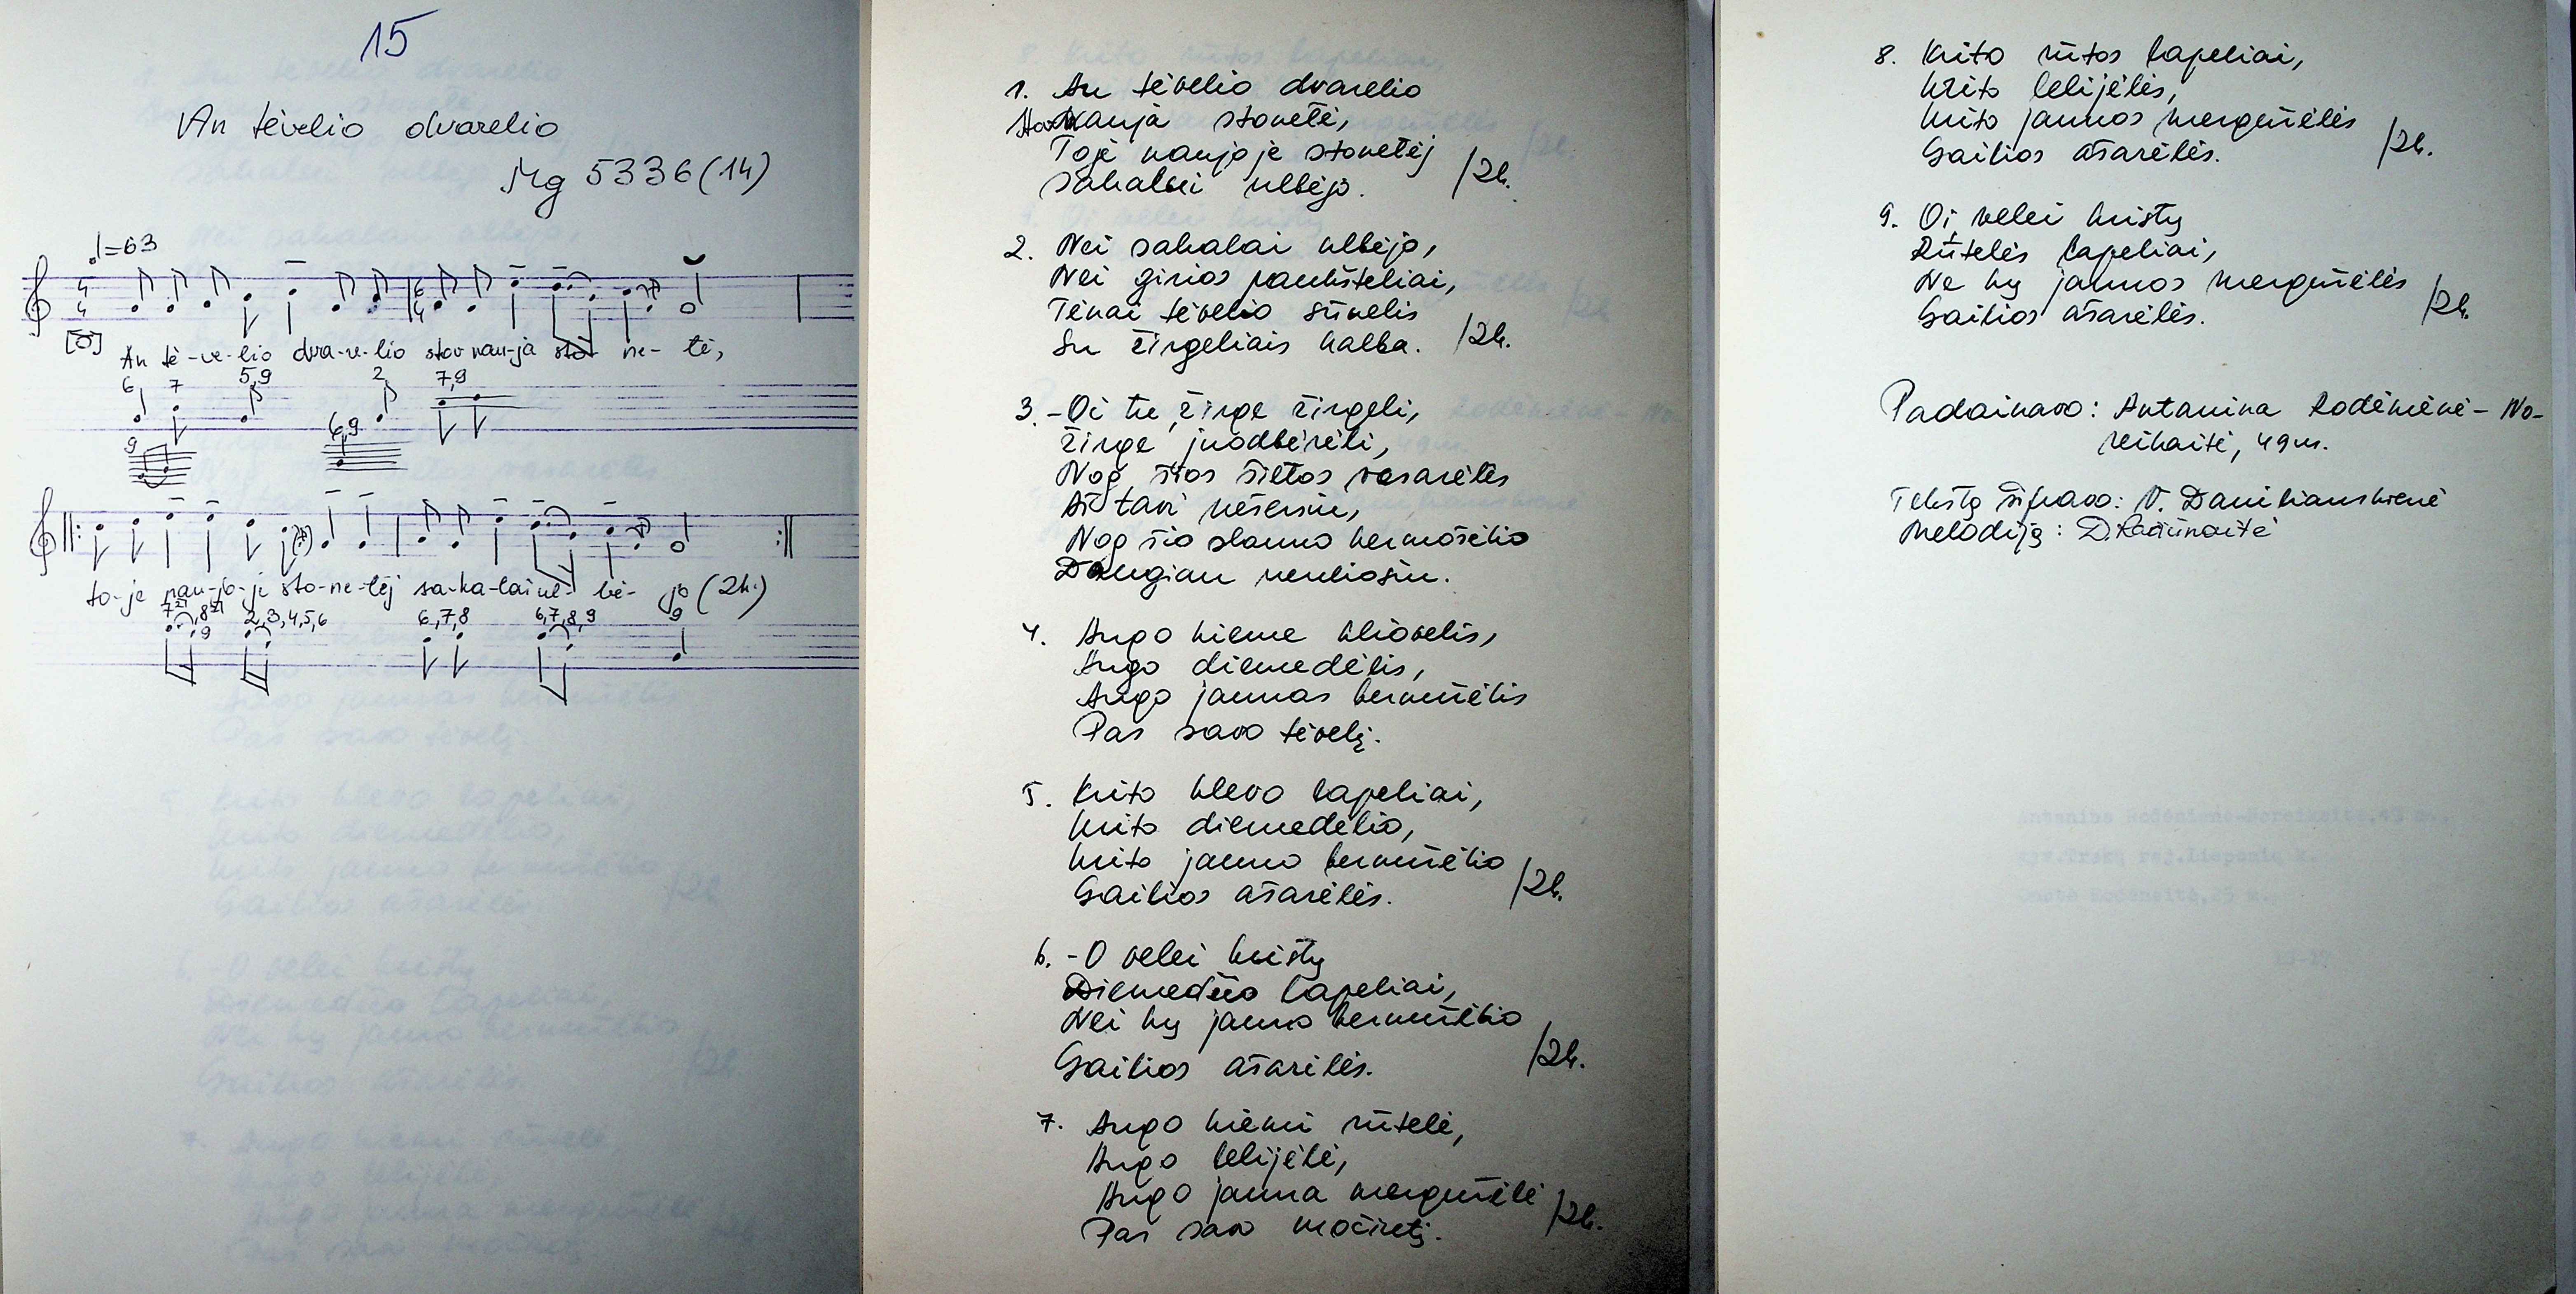 15
An tėvelio dvarelio
Mg 5336 (14)
♩=63
4
4
6
4
An tė-ve-lio dva-re-lio stov nau-ja sto- ne- tė,
6 7 5,9 2 7,9
9 6,9
to-je nau-jo-je sto-ne-tėj sa-ka-lai ul- bė- jo (2k.)
9 2,3,4,5,6 6,7,8 6,7,8,9 9
1. An tėvelio dvarelio
Stov nauja stonetė,
Toje naujoje stonetėj
Sakalai ulbėjo. /2k.
2. Nei sakalai ulbėjo,
Nei girios paukšteliai,
Tėnai tėvelio sūnelis
Su žirgeliais kalba. /2k.
3. - Oi tu, žirge žirgeli,
Žirge juodbėrėli,
Nog šios šiltos vasarėlės
Aš tavi nešersiu,
Nog šio slauno bernužėlio
Daugiau neuliosiu.
4. Augo kieme kliovelis,
Augo diemedėlis,
Augo jaunas bernužėlis
Pas savo tėvelį.
5. Krito klevo lapeliai,
krito diemedėlio,
krito jauno bernužėlio
Gailios ašarėlės. /2k.
6. - O velei kristų
Diemedžio lapeliai,
Nei kų jauno bernužėlio
Gailios ašarėlės. /2k.
7. Augo kiemi rūtelė,
Augo lelijėlė,
Augo jauna mergužėlė
Pas savo močiutį. /2k.
8. Krito rūtos lapeliai,
krito lelijėlės,
krito jaunos mergužėlės
Gailios ašarėlės. /2k.
9. Oi, velei kristų
Rūtelės lapeliai,
Ne kų jaunos mergužėlės
Gailios ašarėlės. /2k.
Padainavo: Antanina Rodėnienė - No-
reikaitė, 49 m.
Tekstą šifravo: V. Daniliauskienė
Melodiją: D. Račiūnaitė